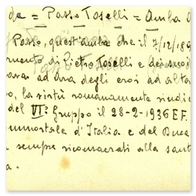 da = Passo Toselli = Amba
Passo, quest'amba che il 7/12/189
mento di Pietro Toselli e dei suoi
ara ad ara degli eroi ad altar
o, la sintù romanamente vendic
del VI: Gruppo il 28-2-1936 E.F.
immortale d'Italia e del Duce
sempre riconsacrati alla sant
ia.